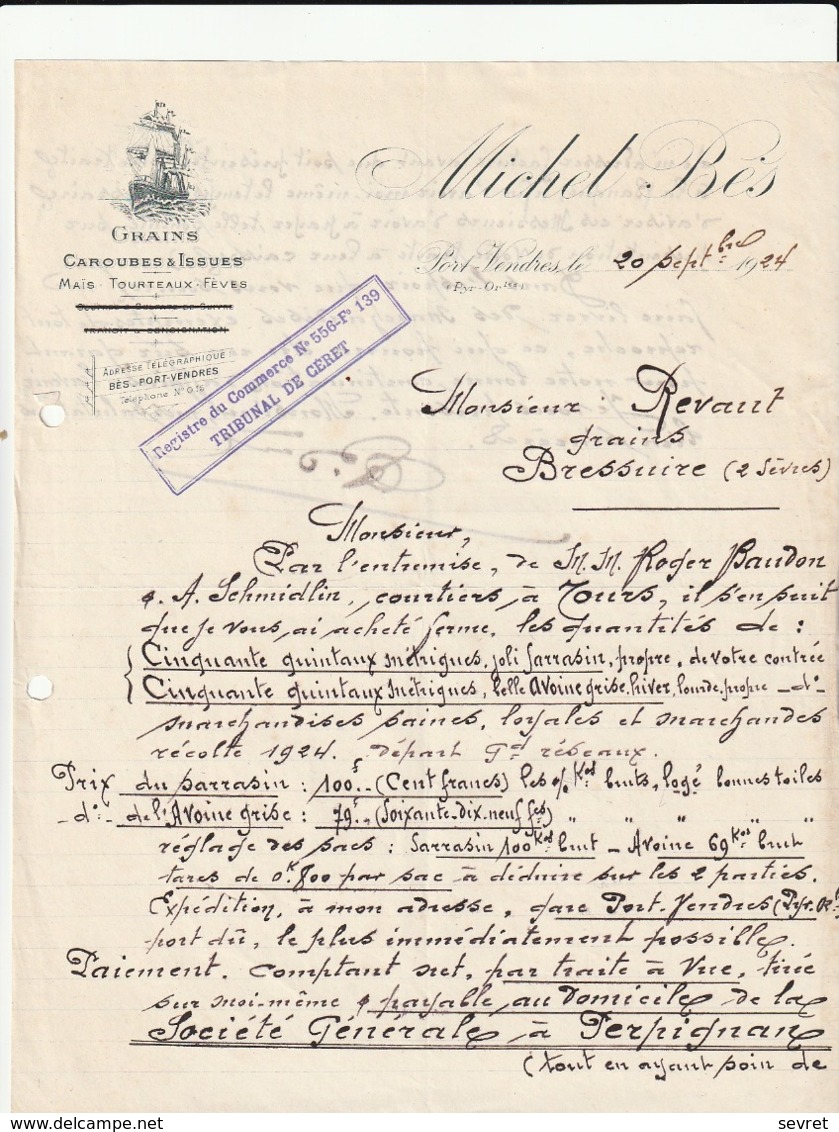 Michel Bès
GRAINS
CAROUBES & ISSUES
MAÏS · TOURTEAUX · FÈVES
TRANSIT & CONSIGNATION
ADRESSE TÉLÉGRAPHIQUE
BÈS-PORT-VENDRES
Téléphone N° 0.15
Port-Vendres, le 20 septbre 1924
(Pyr-Ortles)
Registre du Commerce N° 556-F° 139
TRIBUNAL DE CÉRET
Monsieur Revaut
grains
Bressuire (2 Sèvres)
Monsieur,
Par l'entremise, de M.M. Roger Baudon
&. A. Schmidlin, courtiers à Tours, il s'en suit
que je vous ai acheté ferme, les quantités de :
Cinquante quintaux métriques, joli Sarrasin, propre, de votre contrée
Cinquante quintaux métriques, belle Avoine grise, hiver, lourde, propre - d° -
marchandises saines, loyales et marchandes
récolte 1924. départ Gds réseaux.
Prix du sarrasin : 100f.- (Cent francs) les % Kos bruts, logé bonnes toiles
- d° - de l'Avoine grise : 79f.,, (Soixante-dix-neuf fcs) " " " "
réglage des sacs : Sarrasin 100 Kos brut - Avoine 69 Kos brut
tares de 0k.800 par sac à déduire sur les 2 parties.
Expédition, à mon adresse, gare Port-Vendres (Pyr. Ores
port dû, le plus immédiatement possible.
Paiement. comptant net, par traite à vue, tirée
sur moi-même & payable, au Domicile de la
Société Générale à Perpignan
(tout en ayant soin de
sevret